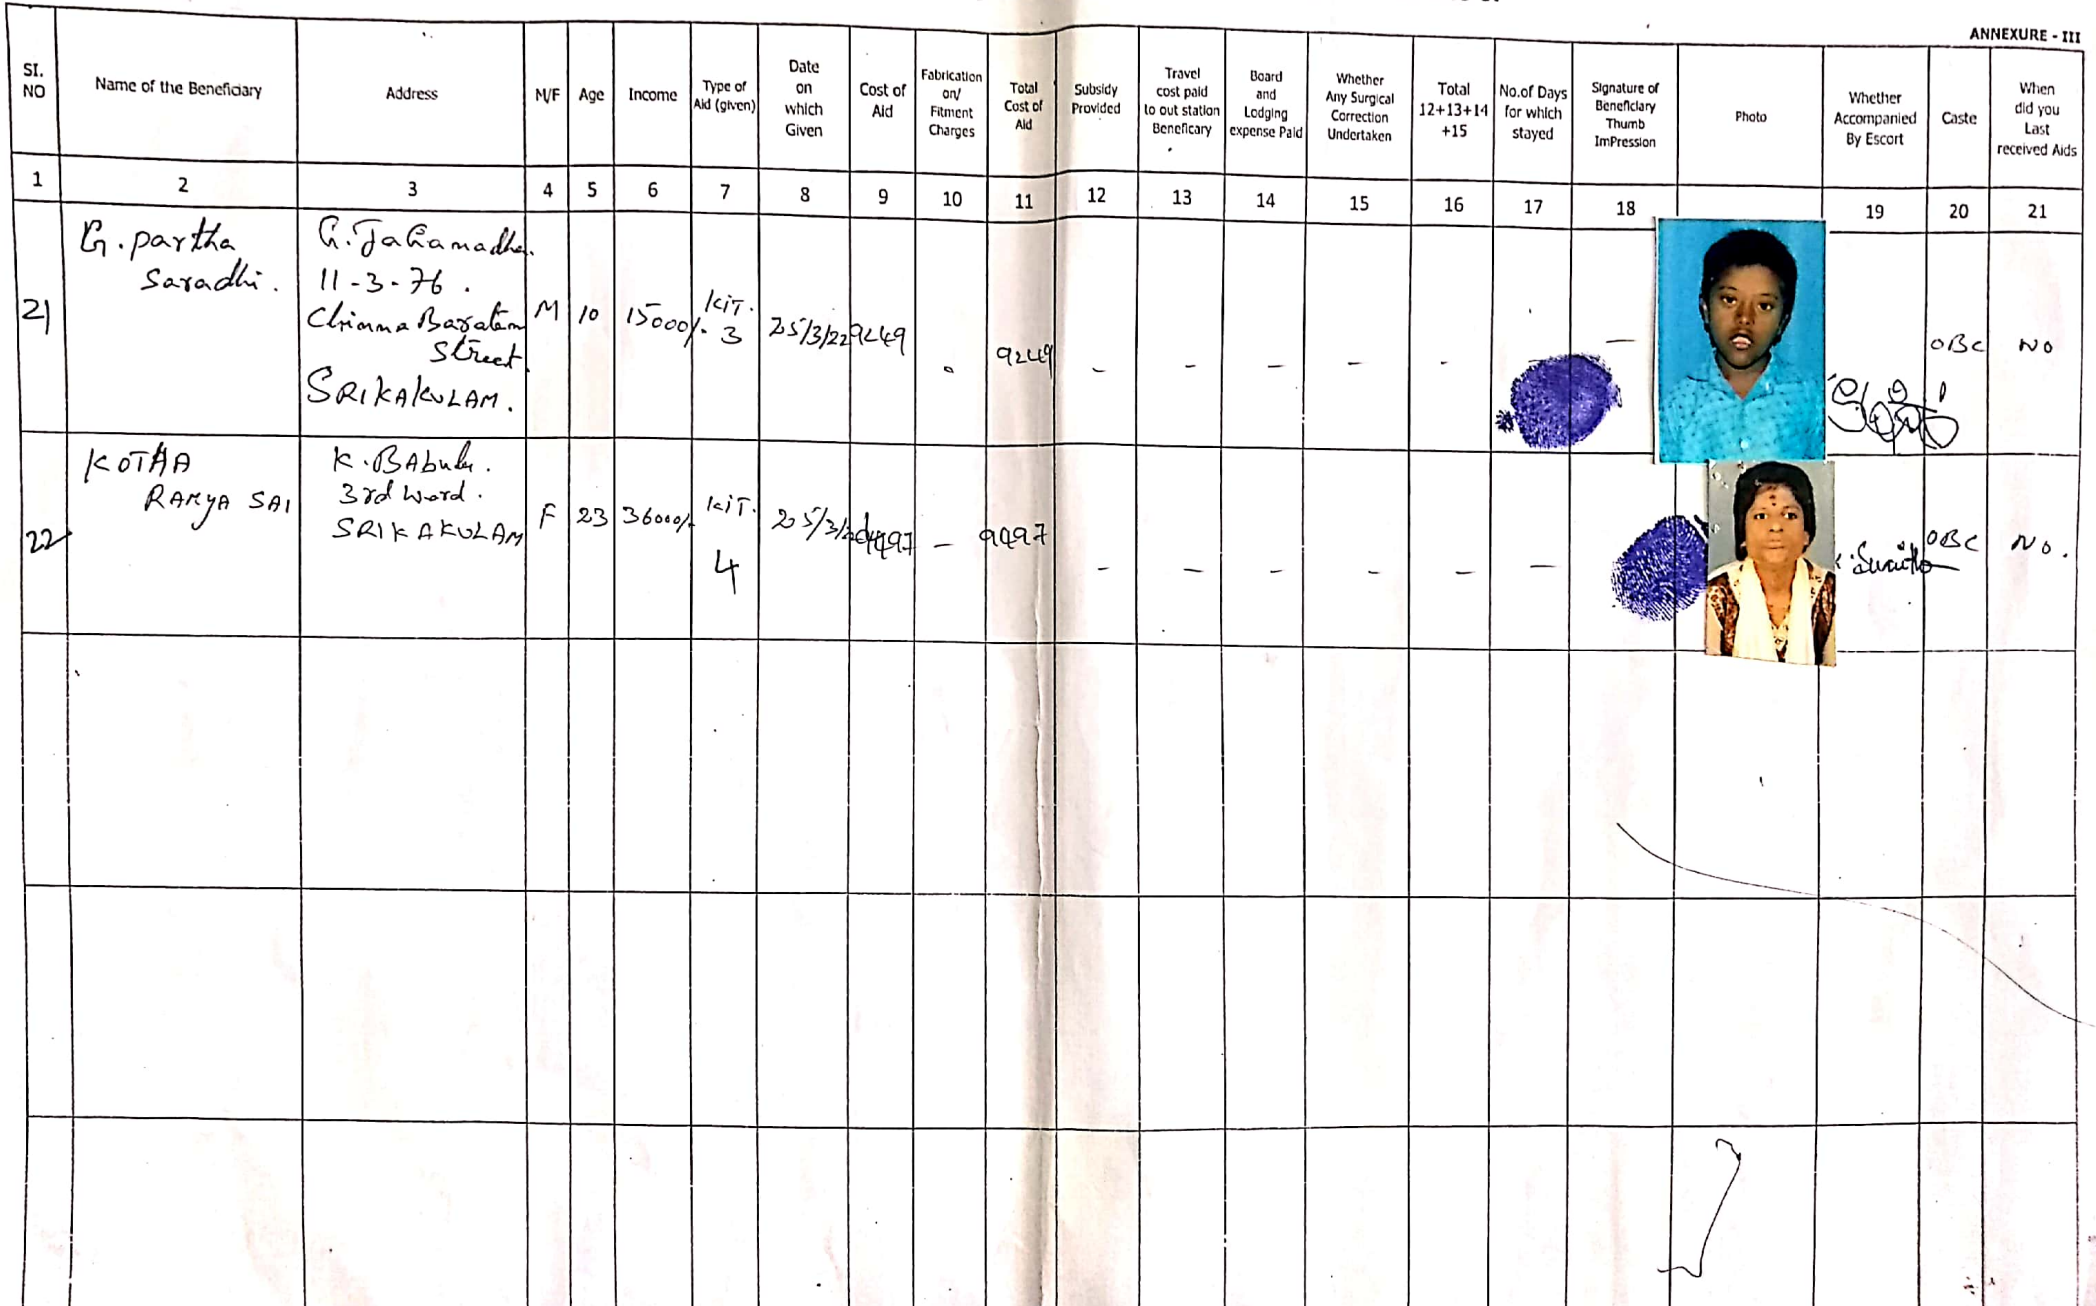 ANNEXURE - III
SI. NO
Name of the Beneficiary
Address
M/F
Age
Income
Type of Aid (given)
Date on which Given
Cost of Aid
Fabrication on/ Fitment Charges
Total Cost of Aid
Subsidy Provided
Travel cost paid to out station Beneficary
Board and Lodging expense Paid
Whether Any Surgical Correction Undertaken
Total 12+13+14 +15
No.of Days for which stayed
Signature of Beneficiary Thumb ImPression
Photo
Whether Accompanied By Escort
Caste
When did you Last received Aids
1 2 3 4 5 6 7 8 9 10 11 12 13 14 15 16 17 18 19 20 21
21
G. partha
Saradhi.
11-3-76.
Chinna Baratam
Street
SRIKAKULAM.
M
10
15000/-
KIT.
3
25/3/22
9249
9249
-
-
-
-
-
-
OBC
NO
22
KOTHA
RAMYA SAI
K. BAbulu.
3rd Word.
SRIKAKULAM
F
23
36000/-
KIT.
4
25/3/
-
-
-
-
-
-
-
OBC
No.